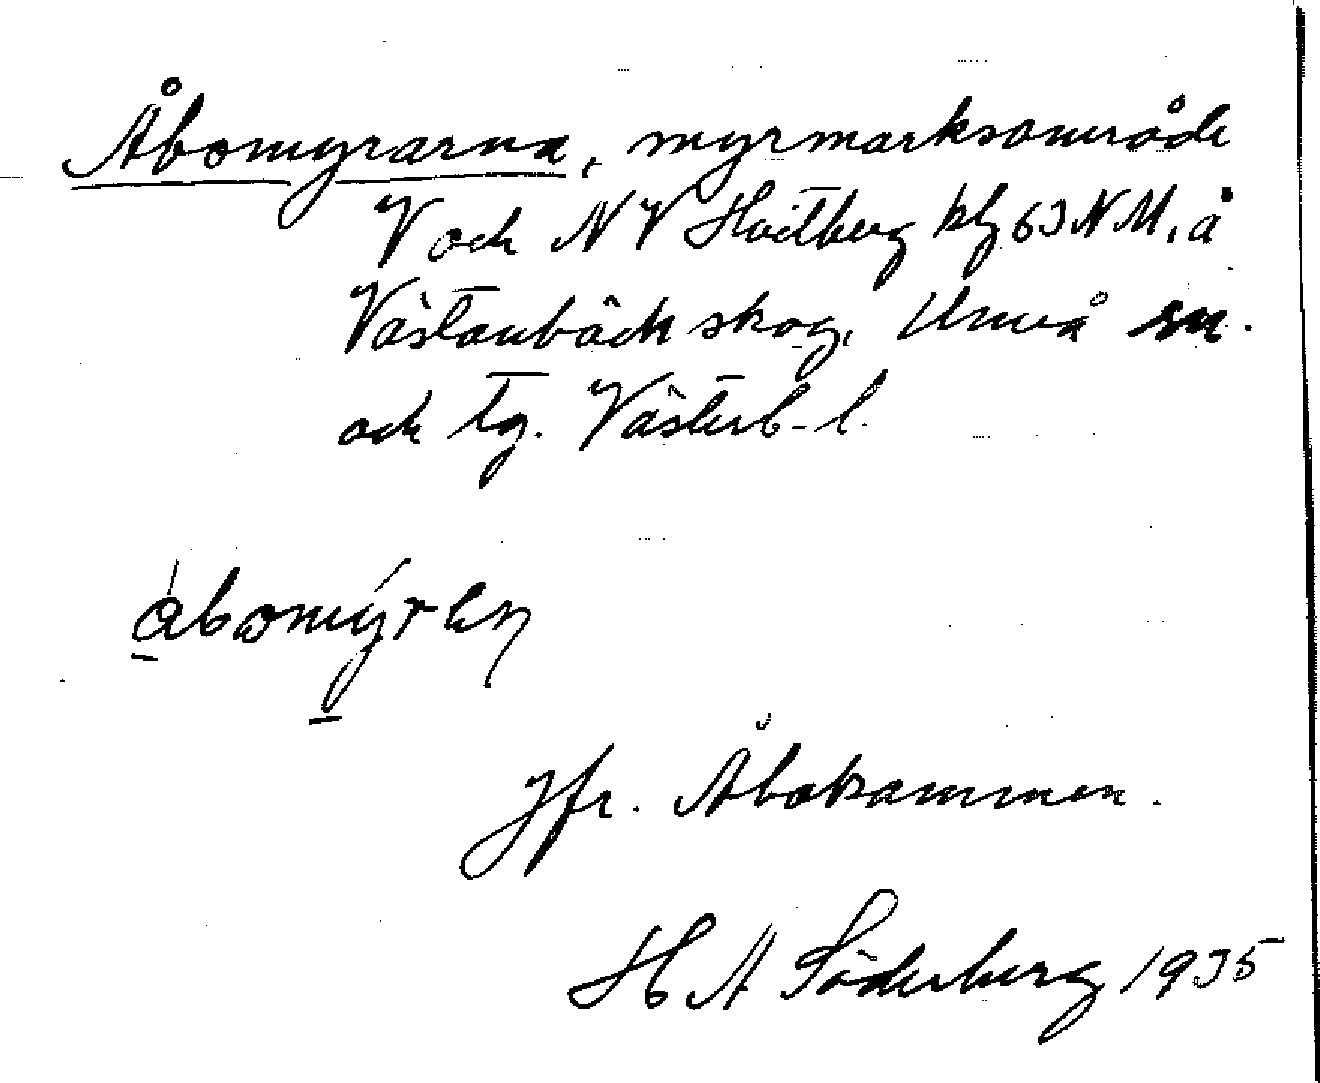 Åbomyrarna, myrmarksområde
V och NV Hvitberg blg 63 NM, å
Västanbäck skog, Umeå sn.
och tg. Västerb-l.
åbomýrɐn
Jfr. Åbokammen.
H A Söderberg 1935